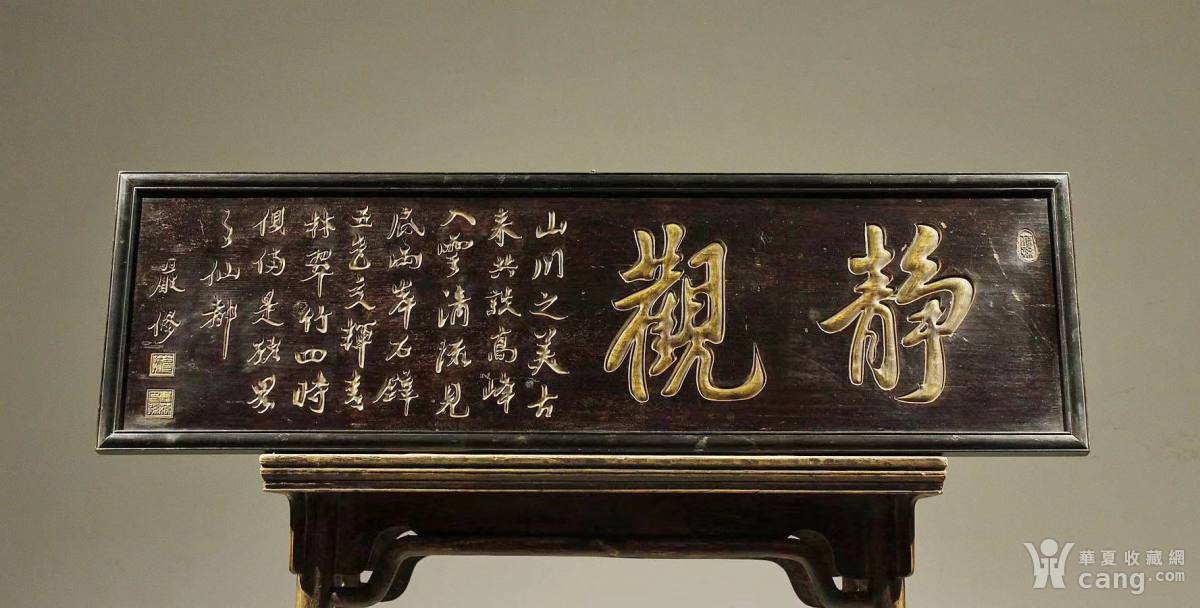 静觀
山川之美古
来共談高峰
入雲清流見
底兩岸石壁
五色交輝青
林翠竹四時
俱備是欲界
之仙都
嚴修
華夏收藏網
cang.com